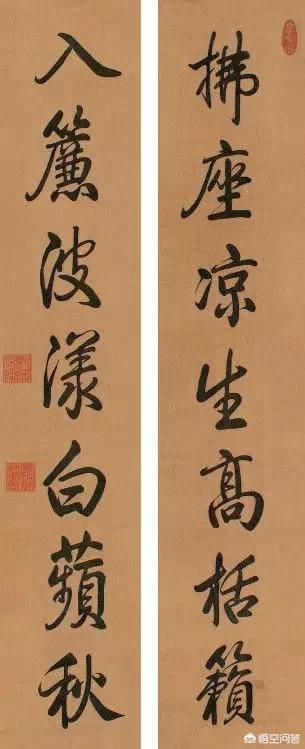 拂座凉生高栝籟
入簾波漾白蘋秋
悟空问答